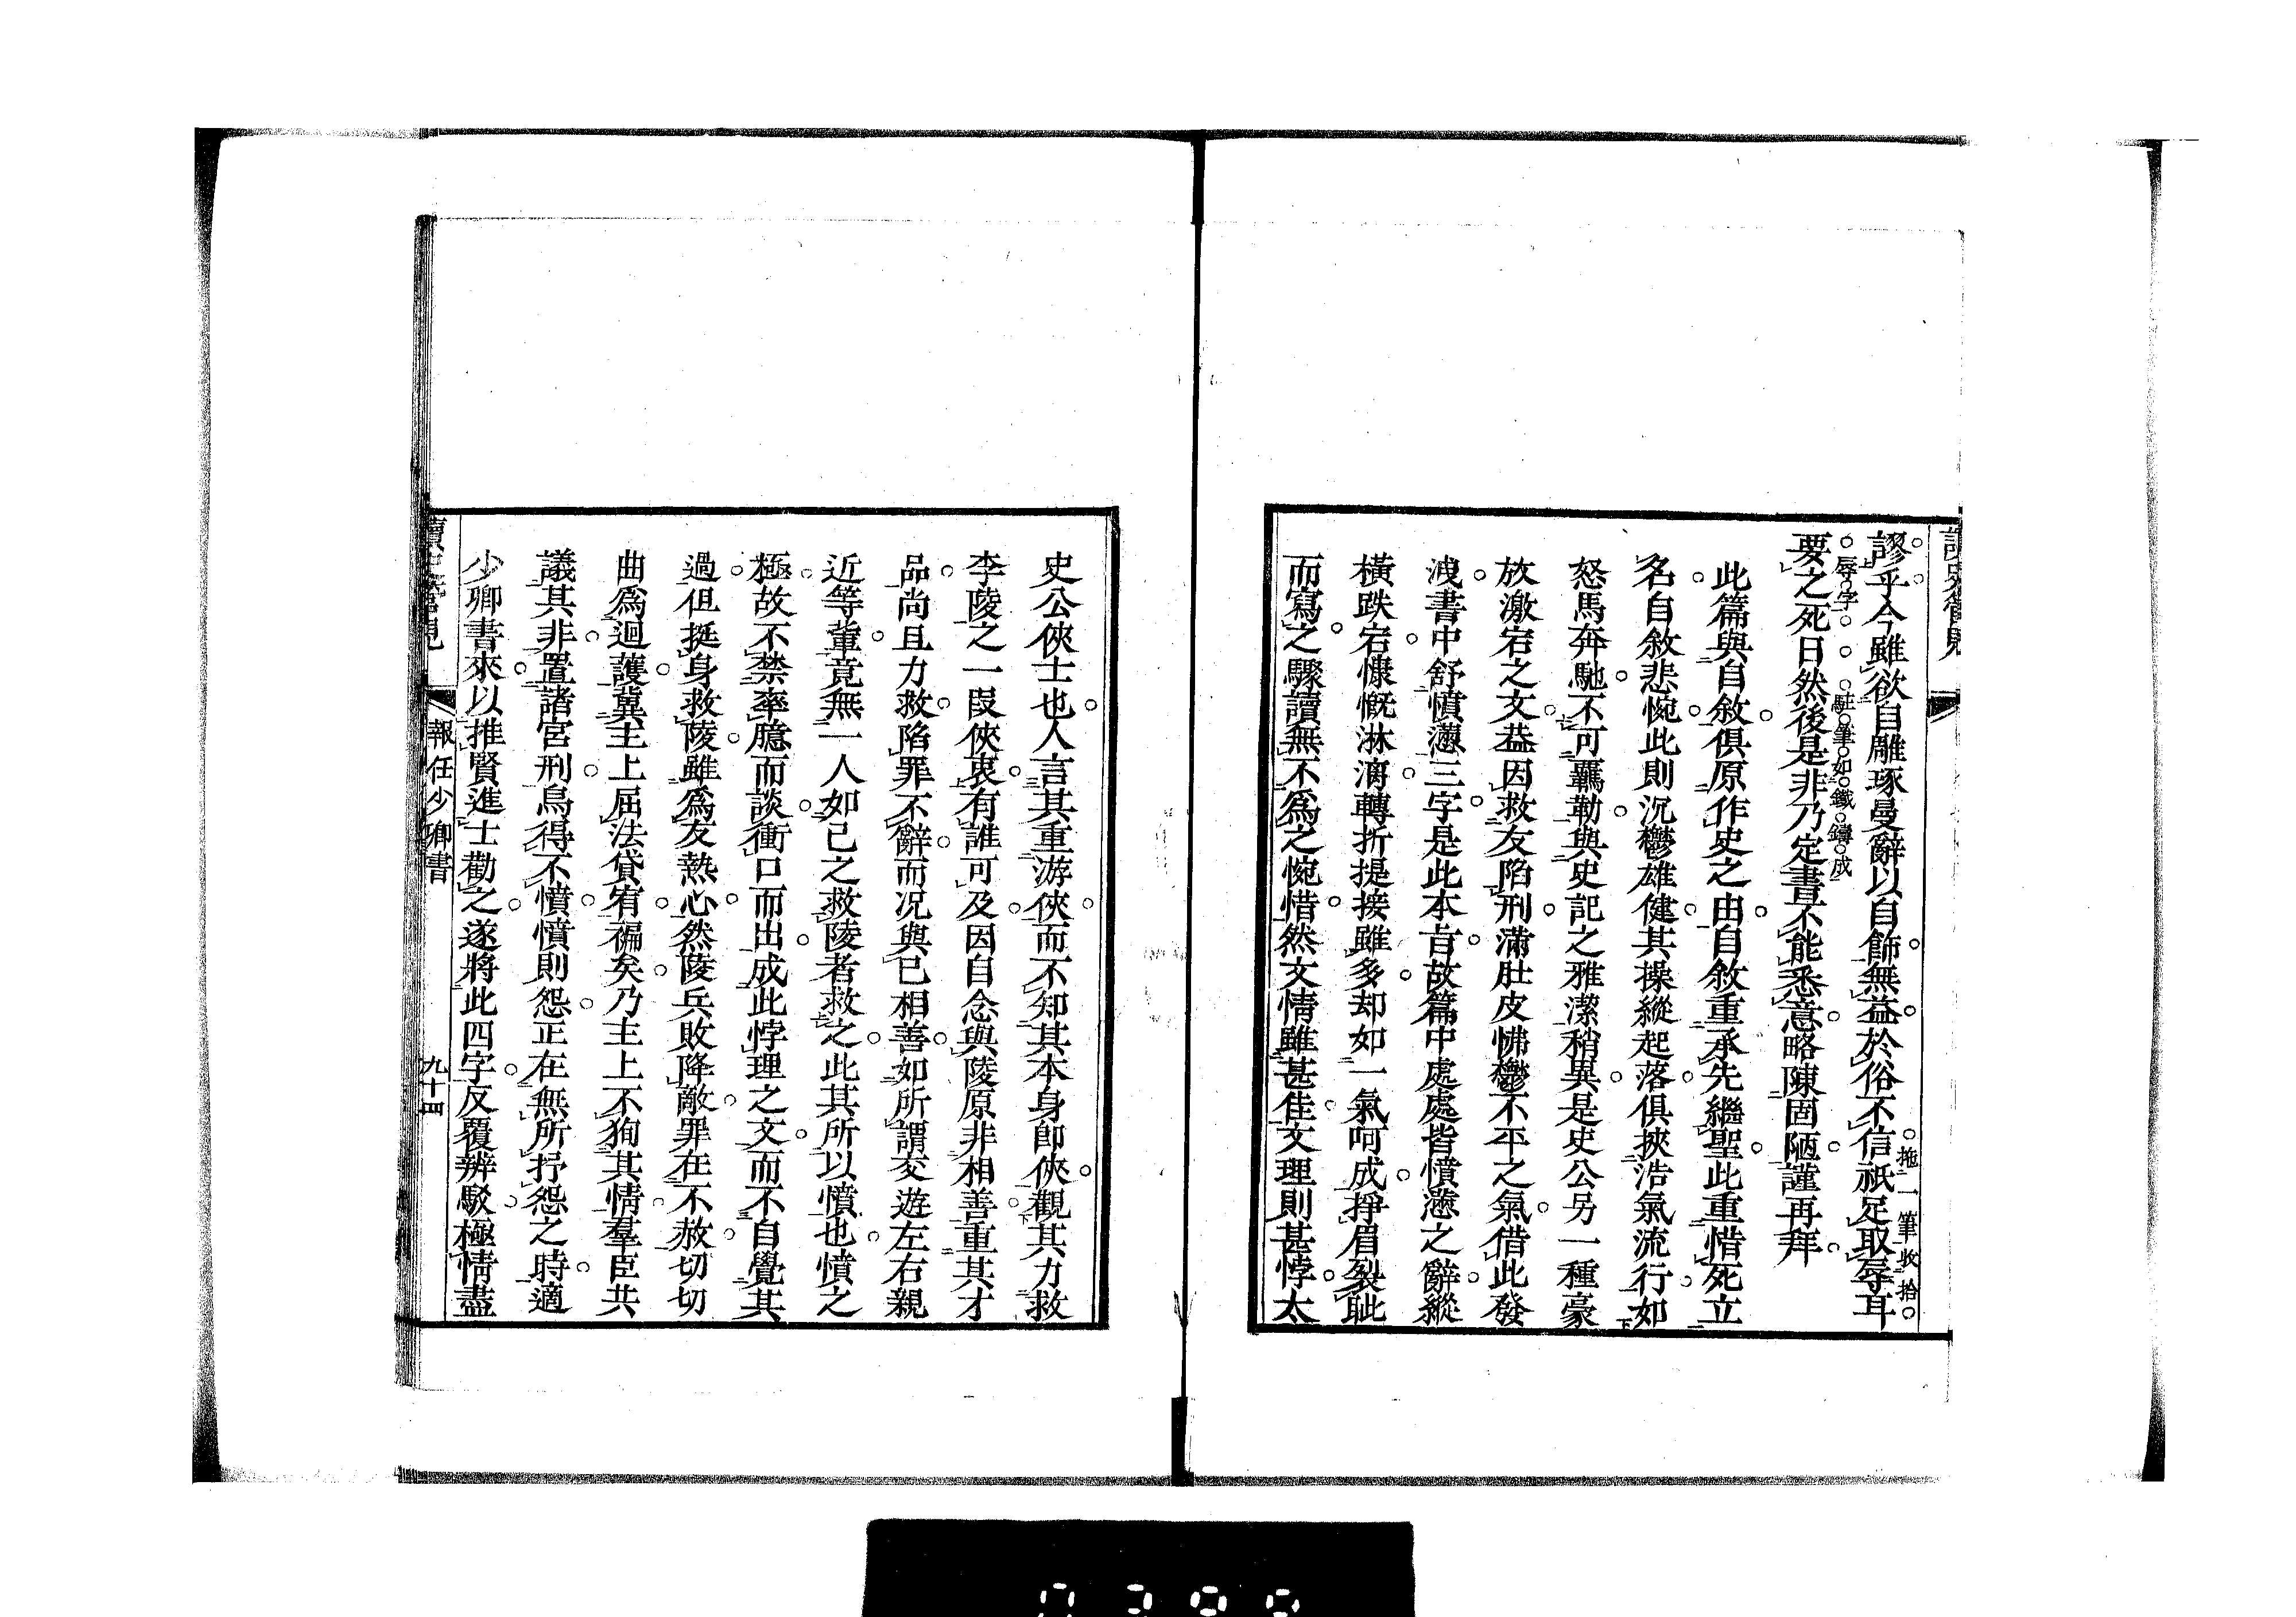 謬乎今雖欲自雕琢曼辭以自飾無益於俗不信祇足取辱耳
拖一筆收拾
辱字
駐筆如鐵鑄成
要之死日然後是非乃定書不能悉意略陳固陋謹再拜
此篇與自敘俱原作史之由自敘重承先繼聖此重惜死立
名自敘悲惋此則沉鬱雄健其操縱起落俱挾浩氣流行如
怒馬奔馳不可羈勒與史記之雅潔稍異是史公另一種豪
放激宕之文葢因救友陷刑滿肚皮怫鬱不平之氣借此發
洩書中舒憤懣三字是此本旨故篇中處處皆憤懣之辭縱
橫跌宕慷慨淋漓轉折提接雖多却如一氣呵成掙眉裂眦
而寫之驟讀無不爲之惋惜然文情雖甚佳文理則甚悖太
史公俠士也人言其重游俠而不知其本身卽俠觀其力救
李陵之一段俠衷有誰可及因自念與陵原非相善重其才
品尚且力救陷罪不辭而况與已相善如所謂交遊左右親
近等輩竟無一人如己之救陵者救之此其所以憤也憤之
極故不禁率臆而談衝口而出成此悖理之文而不自覺其
過但挺身救陵雖爲友熱心然陵兵敗降敵罪在不赦切切
曲爲迴護冀主上屈法貸宥褊矣乃主上不狥其情羣臣共
議其非置諸宮刑烏得不憤憤則怨正在無所抒怨之時適
少卿書來以推賢進士勸之遂將此四字反覆辨駁極情盡
報任少卿書
九十四